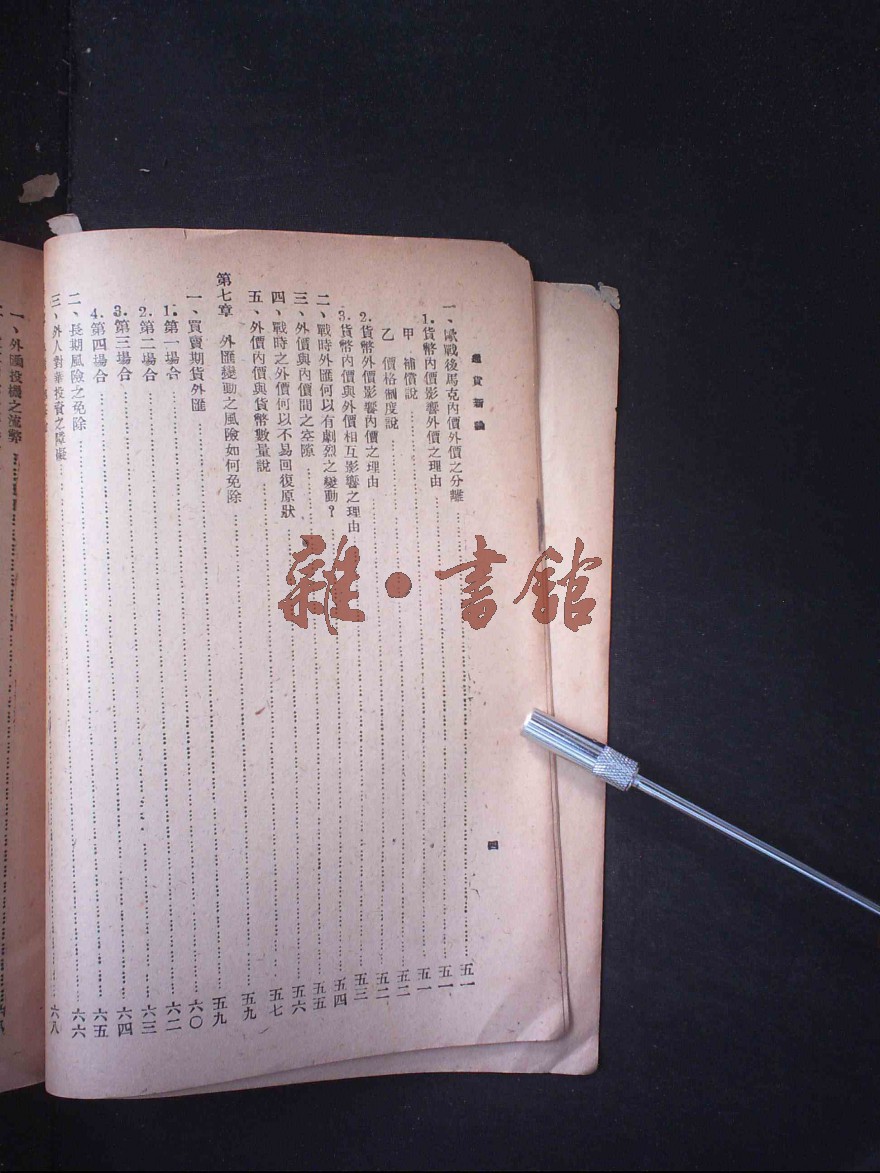 貨新論
一、歐戰後馬克內價外價之分離……五一
1.貨幣內價影響外價之理由……五一
甲 補償說……五一
乙 價格制度說……五二
2.貨幣外價影響內價之理由……五三
3.貨幣內價與外價相互影響之理由……五四
二、戰時外匯何以有劇烈之變動？……五五
三、外價與內價間之空隙……五六
四、戰時之外價何以不易回復原狀……五七
五、外價內價與貨幣數量說……五九
第七章 外匯變動之風險如何免除……五九
一、買賣期貨外匯……六〇
1.第一場合……六二
2.第二場合……六三
3.第三場合……六四
4.第四場合……六五
二、長期風險之免除……六六
三、外人對華投資之障礙……六八
一、外匯投機之流弊
雜·書館